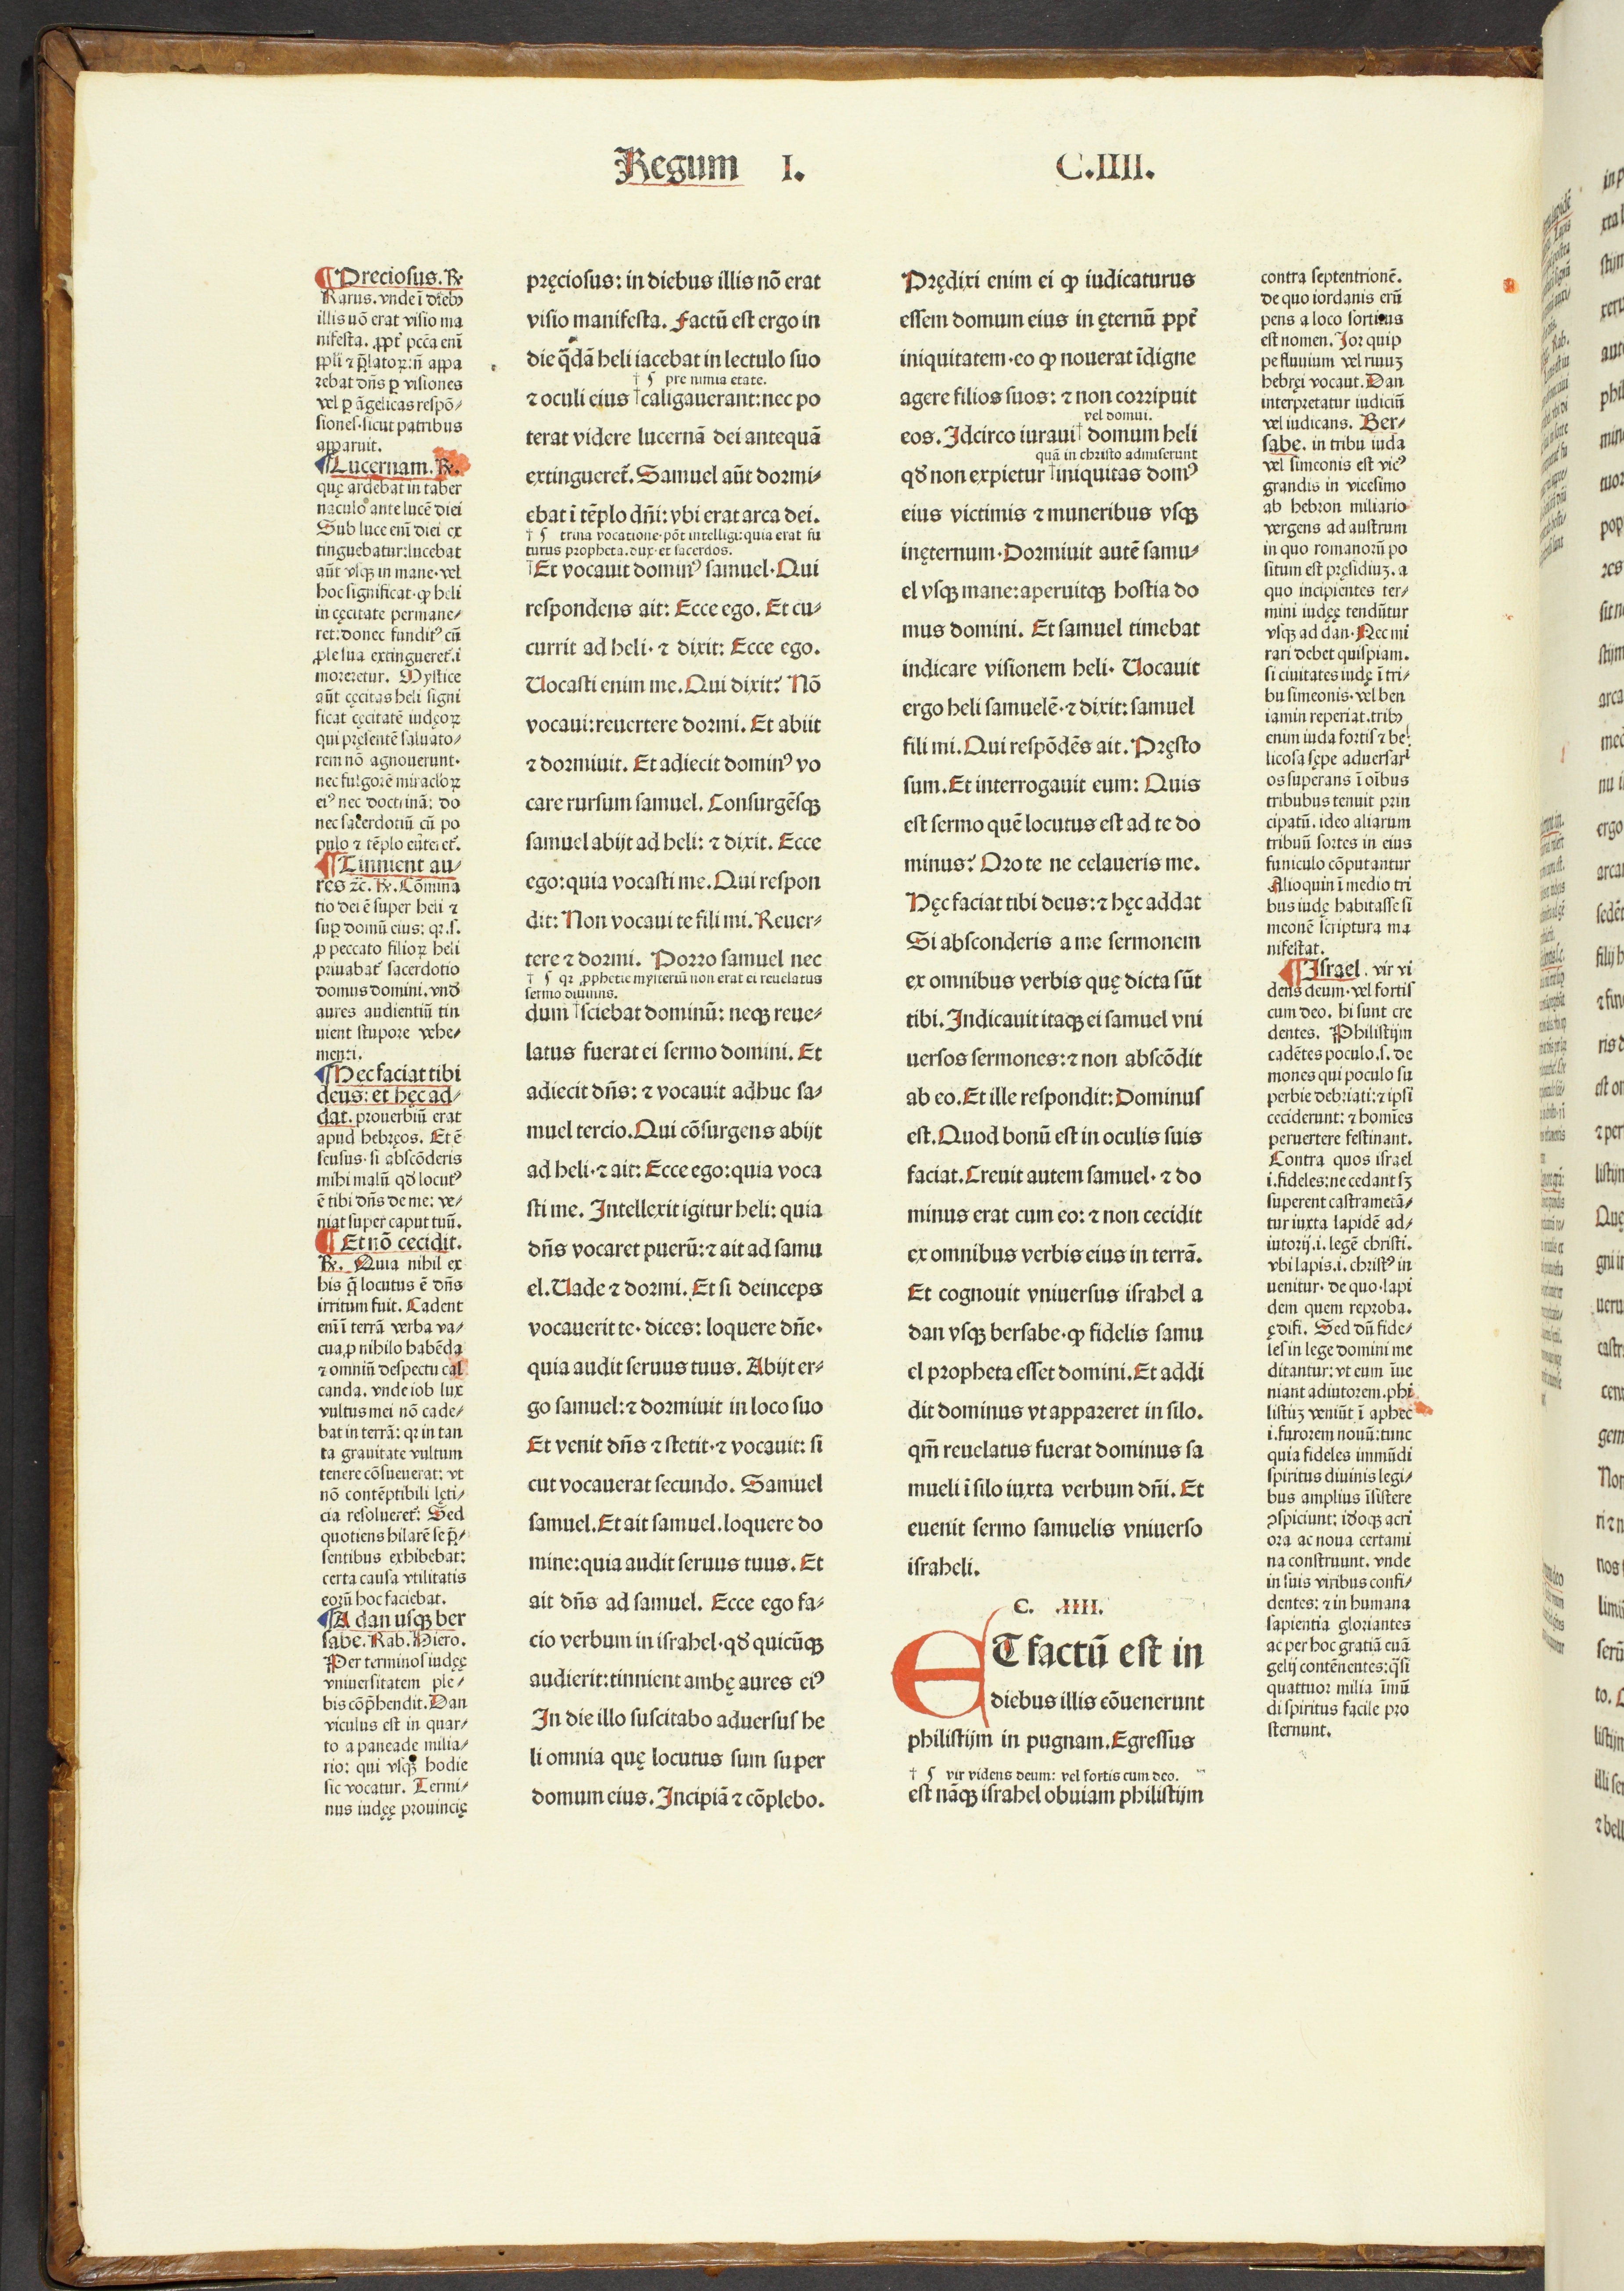 Regum I. C.IIII.
¶Preciosus. R
Rarus. vnde ī dieb9
illis nō erat visio ma
nifesta. ꝓpt̄ pcc̄a enī
ppli ⁊ p̄latoꝝ: n̄ appa
rebat dn̄s ꝑ visiones
vel ꝑ āgelicas respō⸗
siones. sicut patribus
apparuit.
¶Lucernam. R.
quę ardebat in taber
naculo ante lucē diei
Sub luce enī diei ex
tinguebatur: lucebat
aūt vsqꝫ in mane. vel
hoc significat. ꝙ heli
in cęcitate permane⸗
ret: donec fundit9 cū
ꝓle sua extingueret̄. i
moreretur. Mystice
aūt cęcitas heli signi
ficat cęcitatē iudęoꝝ
qui pręsentē saluato⸗
rem nō agnouerunt.
nec fulgorē miraclōꝝ
ei9 nec doctrinā: do
nec sacerdotiū cū po
pulo ⁊ tēplo
¶Tinnient au⸗
res ⁊c̄. R. Cōmina
tio dei ē super heli ⁊
suꝑ domū eius: qꝛ .s.
ꝓ peccato filioꝝ heli
priuabat̄ sacerdotio
domus domini. vnd̄
aures audientiū tin
nient stupore vehe⸗
menti.
¶Hec faciat tibi
deus: et hęc ad⸗
dat. prouerbiū erat
apud hebręos. Et ē
sensus. si abscōderis
mihi malū qd̄ locut9
ē tibi dn̄s de me: ve⸗
niat super caput tuū.
¶Et nō cecidit.
R. Quia nihil ex
his q̄ locutus ē dn̄s
irritum fuit. Cadent
enī ī terrā verba va⸗
cua, ꝓ nihilo habēda
⁊ omniū despectu cal
canda. vnde iob lux
vultus mei nō cade⸗
bat in terrā: qꝛ in tan
ta grauitate vultum
tenere cōsueuerat: vt
nō contēptibili lęti⸗
cia resolueret̄: Sed
quotiens hilarē se p̄⸗
sentibus exhibebat:
certa causa vtilitatis
eorū hoc faciebat.
¶A dan usqꝫ ber
sabe. Rab. Hiero.
Per terminos iudęę
vniuersitatem ple⸗
bis cōp̄hendit. Dan
viculus est in quar⸗
to a paneade milia⸗
rio: qui vsqꝫ hodie
sic vocatur. Termi⸗
nus iudęę prouincię
pręciosus: in diebus illis nō erat
visio manifesta. Factū est ergo in
die q̄dā heli iacebat in lectulo suo
† ¶ pre nimia etate.
⁊ oculi eius †caligauerant: nec po
terat videre lucernā dei antequā
extingueret̄. Samuel aūt dormi⸗
ebat ī tēplo dn̄i: vbi erat arca dei.
† ¶ trina vocatione. pōt intelligi: quia erat fu
turus propheta. dux. et sacerdos.
†Et vocauit domin9 samuel. Qui
respondens ait: Ecce ego. Et cu⸗
currit ad heli. ⁊ dixit: Ecce ego.
Uocasti enim me. Qui dixit: Nō
vocaui: reuertere dormi. Et abiit
⁊ dormiuit. Et adiecit domin9 vo
care rursum samuel. Consurgēsqꝫ
samuel abijt ad heli: ⁊ dixit. Ecce
ego: quia vocasti me. Qui respon
dit: Non vocaui te fili mi. Reuer⸗
tere ⁊ dormi. Porro samuel nec
† ¶ qꝛ ꝓphetie mysteriū non erat ei reuelatus
sermo diuinus.
dum †sciebat dominū: neqꝫ reue⸗
latus fuerat ei sermo domini. Et
adiecit dn̄s: ⁊ vocauit adhuc sa⸗
muel tercio. Qui cōsurgens abijt
ad heli. ⁊ ait: Ecce ego: quia voca
sti me. Intellexit igitur heli: quia
dn̄s vocaret puerū: ⁊ ait ad samu
el. Uade ⁊ dormi. Et si deinceps
vocauerit te. dices: loquere dn̄e.
quia audit seruus tuus. Abijt er⸗
go samuel: ⁊ dormiuit in loco suo
Et venit dn̄s ⁊ stetit. ⁊ vocauit: si
cut vocauerat secundo. Samuel
samuel. Et ait samuel. loquere do
mine: quia audit seruus tuus. Et
ait dn̄s ad samuel. Ecce ego fa⸗
cio verbum in israhel. qd̄ quicūqꝫ
audierit: tinnient ambę aures ei9
In die illo suscitabo aduersus he
li omnia quę locutus sum super
domum eius. Incipiā ⁊ cōplebo.
Prędixi enim ei ꝙ iudicaturus
essem domum eius in ęternū ꝓpt̄
iniquitatem. eo ꝙ nouerat īdigne
agere filios suos: ⁊ non corripuit
vel domui.
eos. Idcirco iuraui† domum heli
quā in christo admiserunt
qd̄ non expietur †iniquitas dom9
eius victimis ⁊ muneribus vsqꝫ
inęternum. Dormiuit autē samu⸗
el vsqꝫ mane: aperuitqꝫ hostia do
mus domini. Et samuel timebat
indicare visionem heli. Uocauit
ergo heli samuelē. ⁊ dixit: samuel
fili mi. Qui respōdēs ait. Pręsto
sum. Et interrogauit eum: Quis
est sermo quē locutus est ad te do
minus: Oro te ne celaueris me.
Hęc faciat tibi deus: ⁊ hęc addat
Si absconderis a me sermonem
ex omnibus verbis quę dicta sūt
tibi. Indicauit itaqꝫ ei samuel vni
uersos sermones: ⁊ non abscōdit
ab eo. Et ille respondit: Dominus
est. Quod bonū est in oculis suis
faciat. Creuit autem samuel. ⁊ do
minus erat cum eo: ⁊ non cecidit
ex omnibus verbis eius in terrā.
Et cognouit vniuersus israhel a
dan vsqꝫ bersabe. ꝙ fidelis samu
el propheta esset domini. Et addi
dit dominus vt appareret in silo.
qm̄ reuelatus fuerat dominus sa
mueli ī silo iuxta verbum dn̄i. Et
euenit sermo samuelis vniuerso
israheli.
C. .IIII.
ET factū est in
diebus illis cōuenerunt
philistijm in pugnam. Egressus
† ¶ vir videns deum: vel fortis cum deo.
est nāqꝫ israhel obuiam philistijm
contra septentrionē.
de quo iordanis erū
pens a loco sortitus
est nomen. Ior quip
pe fluuium vel riuuꝫ
hebręi vocant. Dan
interpretatur iudiciū
vel iudicans. Ber⸗
sabe. in tribu iuda
vel simeonis est vic9
grandis in vicesimo
ab hebron miliario
vergens ad austrum
in quo romanorū po
situm est pręsidiuꝫ. a
quo incipientes ter⸗
mini iudęę tendūtur
vsqꝫ ad dan. Nec mi
rari debet quispiam.
si ciuitates iudę ī tri⸗
bu simeonis. vel ben
iamin reperiat. trib9
enim iuda fortis ⁊ be
licosa sępe aduersari
os superans ī oībus
tribubus tenuit prin
cipatū. ideo aliarum
tribuū sortes in eius
funiculo cōputantur
Alioquin ī medio tri
bus iudę habitasse si
meonē scriptura ma
nifestat.
¶Israel. vir vi
dens deum. vel fortis
cum deo. hi sunt cre
dentes. Philistijm
cadētes poculo .s. de
mones qui poculo su
perbie debriati: ⁊ ipsi
ceciderunt: ⁊ homīes
peruertere festinant.
Contra quos israel
.i. fideles: ne cedant sꝫ
superent castrametā⸗
tur iuxta lapidē ad⸗
iutorij .i. legē christi.
vbi lapis .i. christ9 in
uenitur. de quo. lapi
dem quem reproba.
ędifi. Sed dū fide⸗
les in lege domini me
ditantur: vt eum īue
niant adiutorem. phi
listiꝫ veniūt ī aphec
.i. furorem nouū: tunc
quia fideles immūdi
spiritus diuinis legi⸗
bus amplius īsistere
ꝯspiciunt: idoqꝫ acri
ora ac noua certami
na construunt. vnde
in suis viribus confi⸗
dentes: ⁊ in humana
sapientia gloriantes
ac per hoc gratiā euā
gelij contēnentes: q̄si
quattuor milia īmū
di spiritus facile pro
sternunt.